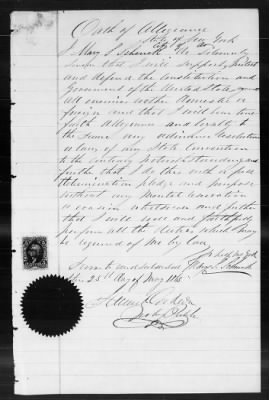 Oath of Allegiance
State of New York
City of
I Mary S. do Solemnly
Swear that I will support, protect
and defend the Constitution and
Government of the United States, against
all enemies whether Domestic or
foreign and that I will bear true
faith Allegiance and loyalty to
the Same any ordinance Resolution
or law of any State Convention
to the Contrary notwithstanding and
further that I do this with a full
determination pledge and purpose
without any mental reservation
or evasion whatsoever and further
that I will well and faithfully
perform all the duties which may
be required of me by law
So help me God
Sworn to and subscribed Mary S.
this 25th day of May